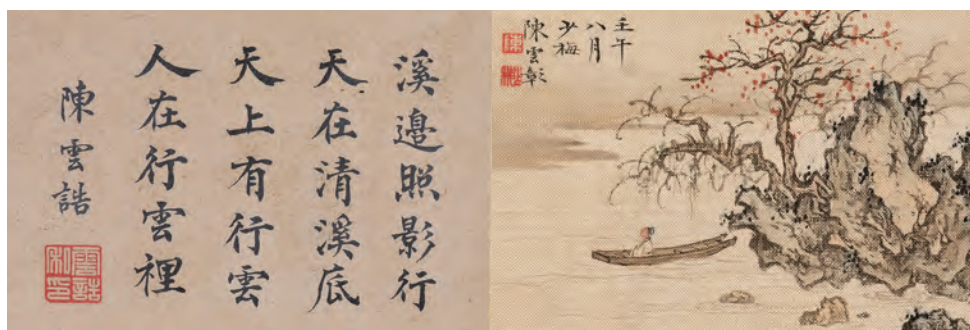 溪邊照影行
天在清溪底
天上有行雲
人在行雲裡
陳雲誥
雲誥
私印
壬午
八月
少梅
陳雲彰